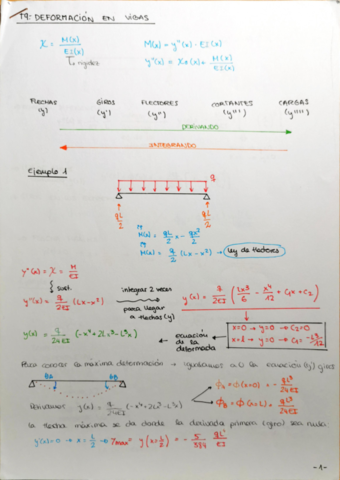 T9: DEFORMACIÓN EN VIGAS
χ = M(x) / EI(x)
↳ rigidez
M(x) = y''(x) · EI(x)
y''(x) = χ(x) = M(x) / EI(x)
FLECHAS GIROS FLECTORES CORTANTES CARGAS
(y) (y') (y'') (y''') (y'''')
DERIVANDO
INTEGRANDO
Ejemplo 1
q
qL/2 qL/2
M(x) = qL/2 x - qx²/2
M(x) = q/2 (Lx - x²) → Ley de flectores
y''(x) = χ = M/EI
sust.
y''(x) = q/2EI (Lx - x²)
integrar 2 veces
para llegar
a flechas (y)
y(x) = q/2EI (Lx³/6 - x⁴/12 + C₁x + C₂)
x=0 → y=0 → C₂=0
x=L → y=0 → C₁ = -L³/12
y(x) = q/24EI (-x⁴ + 2Lx³ - L³x)
ecuación
de la
deformada
Para conocer la máxima deformación → igualamos a 0 la ecuación (y') giros
θA θB
Derivamos: y(x) = q/24EI (-x⁴ + 2Lx³ - L³x)
θA = θ(x=0) = - qL³/24EI
θB = θ(x=L) = qL³/24EI
la flecha máxima se da donde la derivada primera (giro) sea nula
y'(x) = 0 → x = L/2 → fmax = y(x = L/2) = - 5/384 qL⁴/EI
-1-